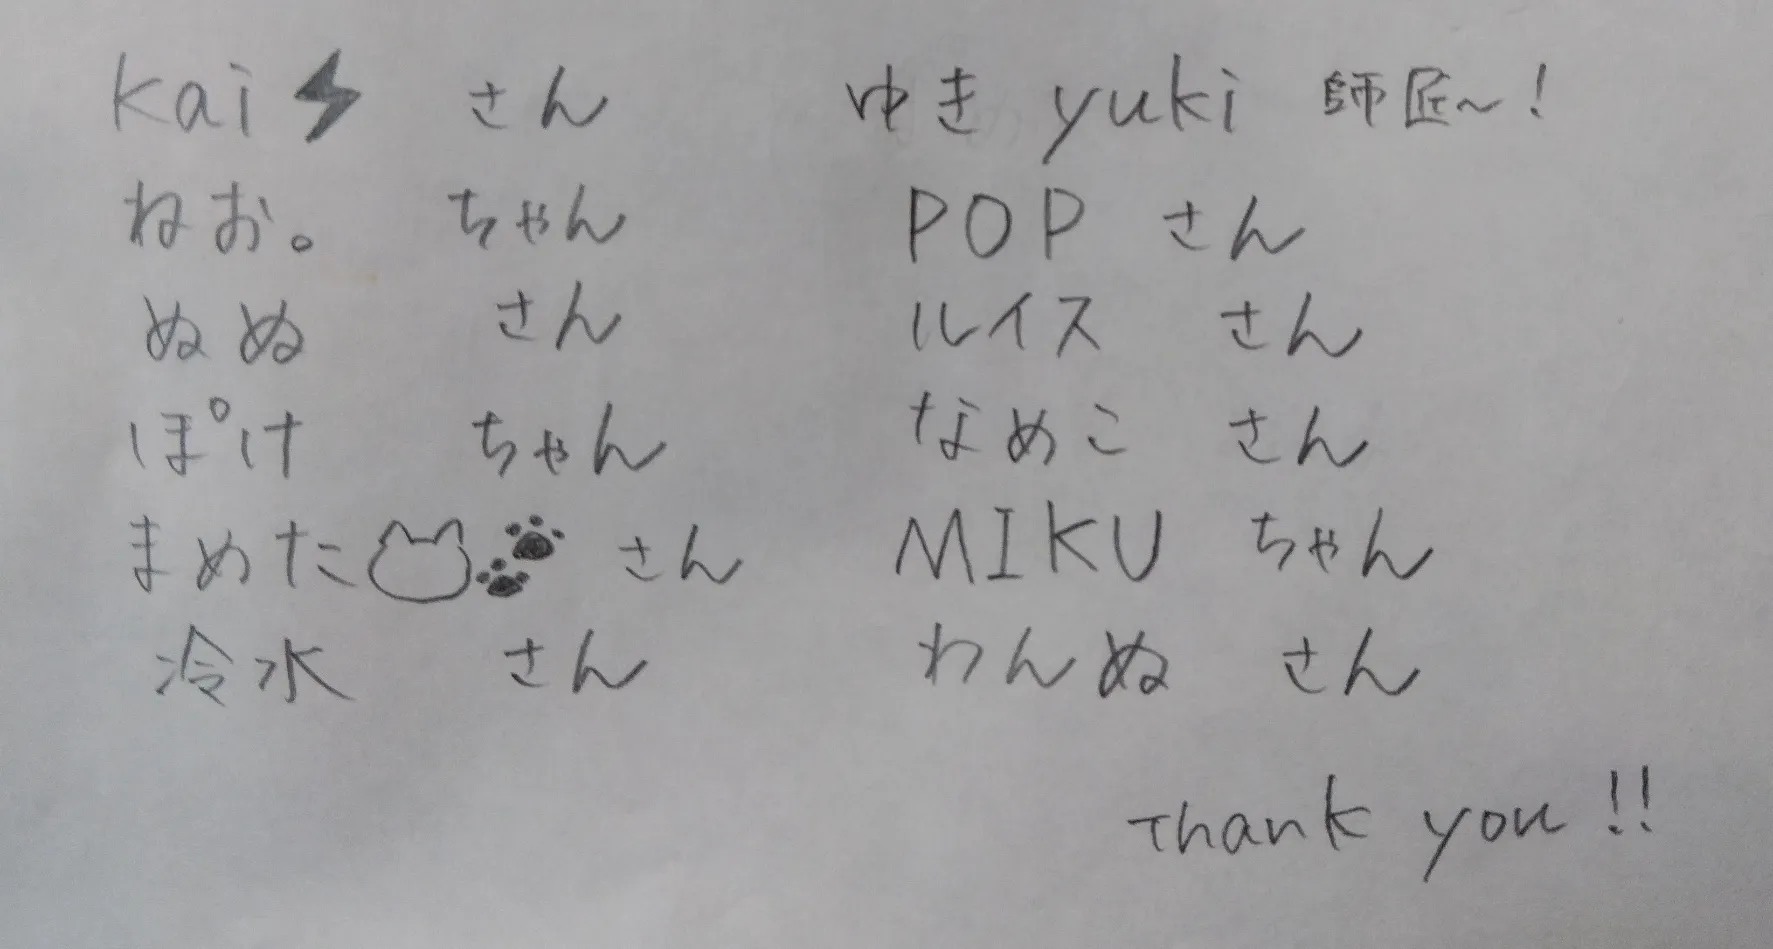 kai⚡ さん
ねお。 ちゃん
ぬぬ さん
ぽけ ちゃん
まめた さん
冷水 さん
ゆき yuki 師匠〜!
POP さん
ルイス さん
なめこ さん
MIKU ちゃん
わんぬ さん
Thank you!!